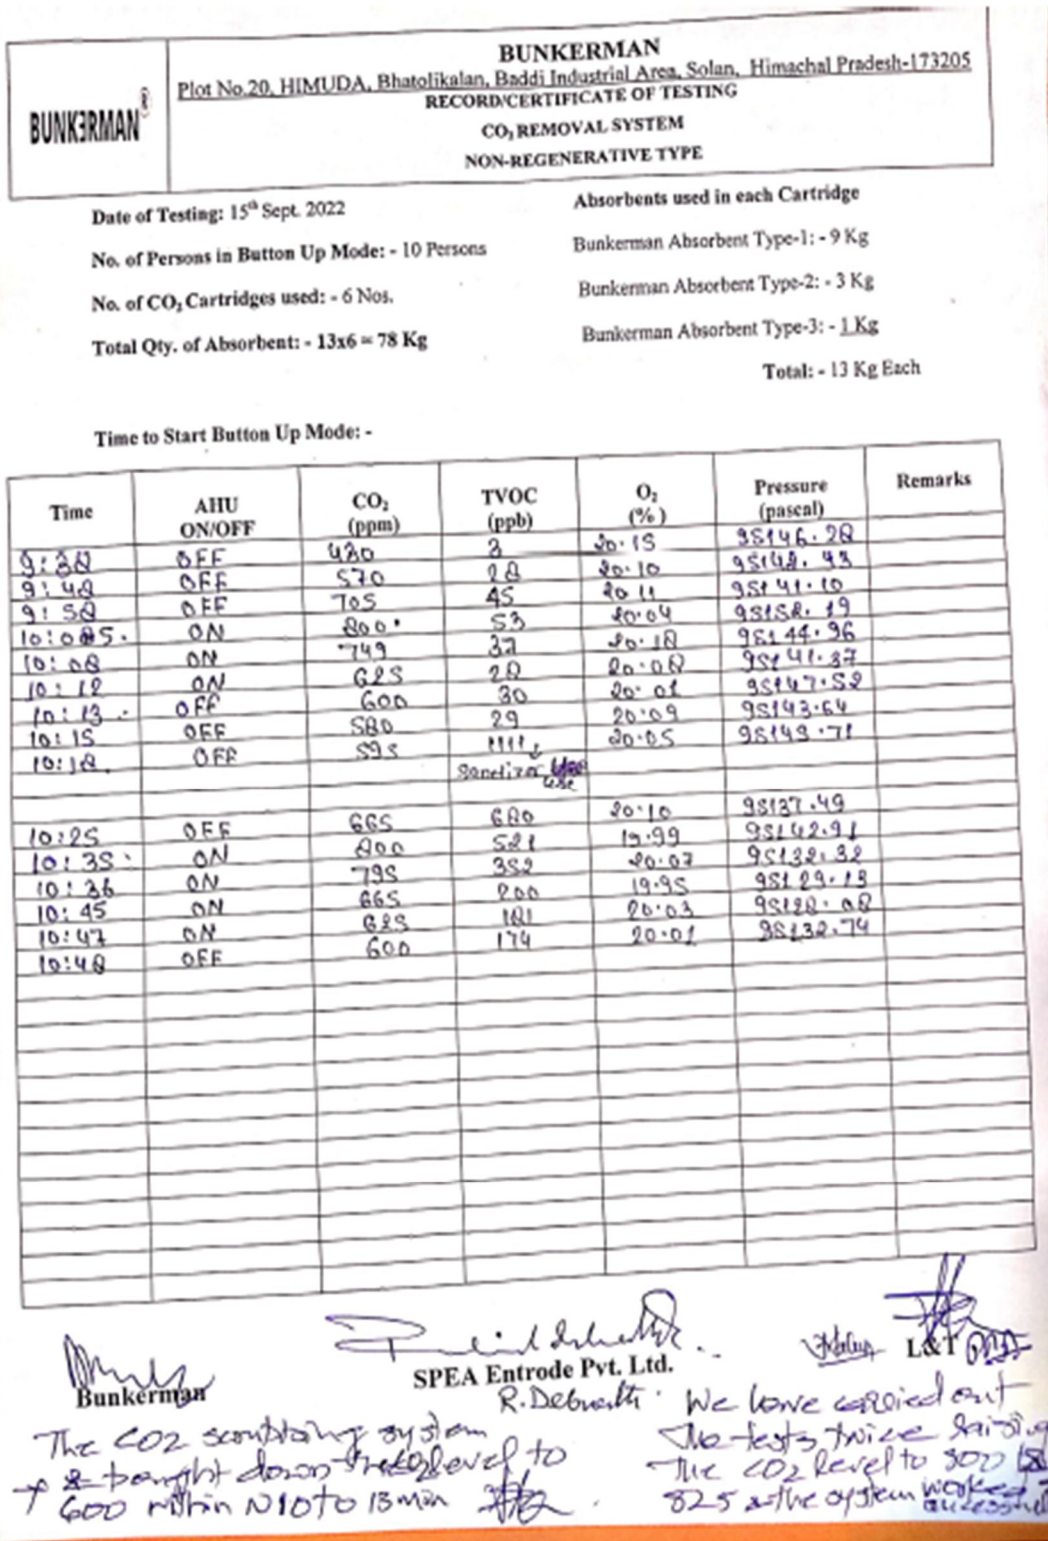 BUNKERMAN
Plot No.20, HIMUDA, Bhatolikalan, Baddi Industrial Area, Solan, Himachal Pradesh-173205
RECORD/CERTIFICATE OF TESTING
CO₂ REMOVAL SYSTEM
NON-REGENERATIVE TYPE
BUNKERMAN®
Date of Testing: 15th Sept. 2022
No. of Persons in Button Up Mode: - 10 Persons
No. of CO₂ Cartridges used: - 6 Nos.
Total Qty. of Absorbent: - 13x6 = 78 Kg
Absorbents used in each Cartridge
Bunkerman Absorbent Type-1: - 9 Kg
Bunkerman Absorbent Type-2: - 3 Kg
Bunkerman Absorbent Type-3: - 1 Kg
Total: - 13 Kg Each
Time to Start Button Up Mode: -
Time AHU ON/OFF CO₂ (ppm) TVOC (ppb) O₂ (%) Pressure (pascal) Remarks
OFF 430 20.15
OFF 570 28 20.10
OFF 705 45 20.11 95141.10
ON 800 53 20.04 95158.19
10:08 ON 749 37 20.18 95144.96
10:12 ON 625 28 20.08 95141.37
10:13 OFF 600 30 20.01 95147.52
10:15 OFF 580 29 20.09 95143.64
10:18 OFF 595 20.05 95149.71
10:25 OFF 665 680 20.10 95137.49
10:35 ON 800 521 19.99 95142.91
10:36 ON 795 352 20.07 95132.32
10:45 ON 665 200 19.95 95129.13
10:47 ON 625 181 20.03 95128.08
10:48 OFF 600 174 20.01 95132.74
Bunkerman
SPEA Entrode Pvt. Ltd.
L&T
R. Debnath
The CO2 system
down level to
600 within 10 to 13 min
We have carried out
the tests twice raising
the CO2 level to 800
825 the system worked